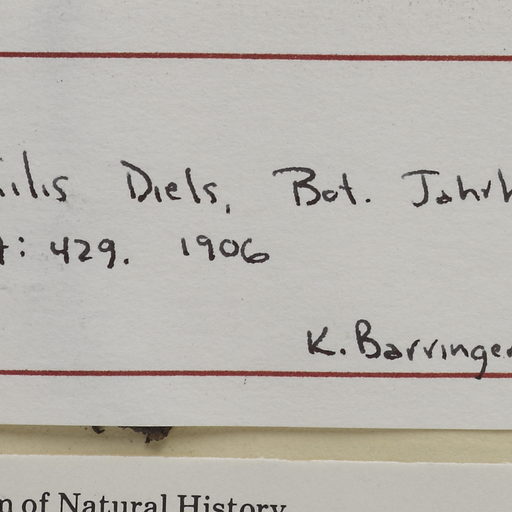 Diels, Bot. Jahrb
: 429. 1906
K. Barringer
n of Natural History